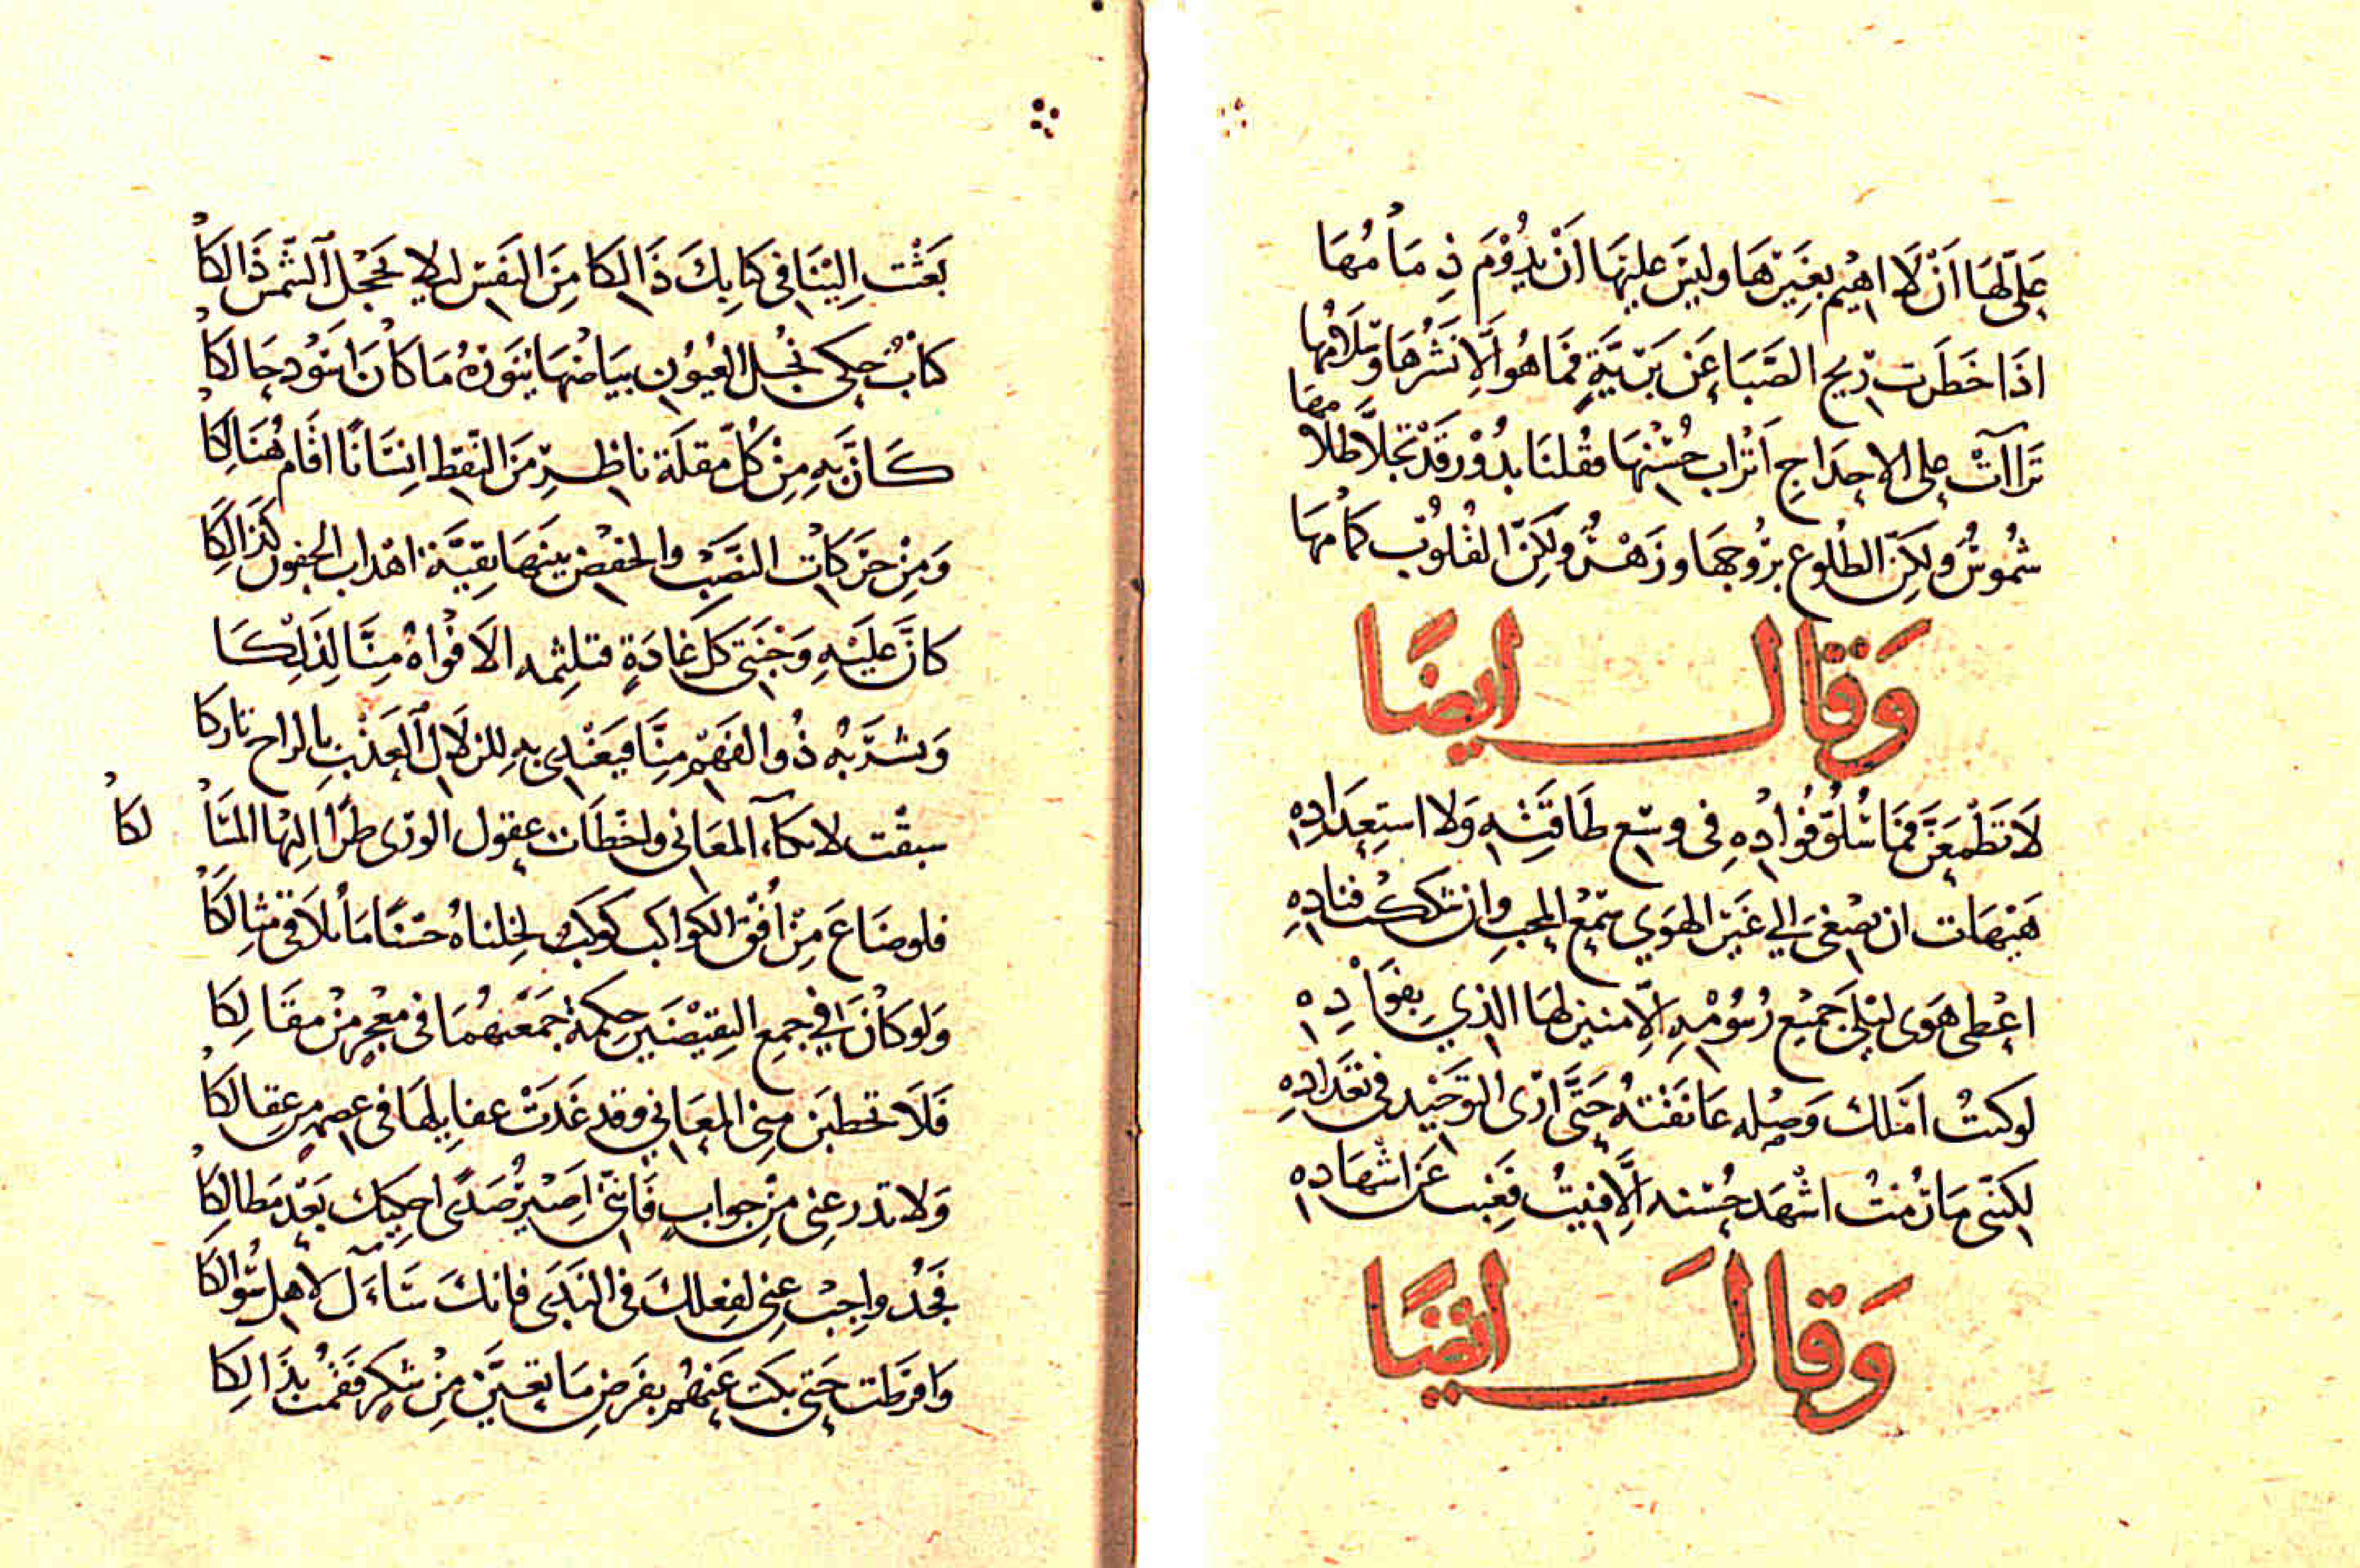 عَلَيَّ لَهَا اَنْ لَا اهِيْم بغَيْرِهَا وليسَ عليهَا اَنْ يدُوْمَ ذِمَامُهَا
اذَا خَطَرت رِيح الصَّبَا عَن بَرِيَّةٍ فمَا هُو اِلّا نَشْرُهَا وسَلامُها
تَراآتْ على الاحدَاجِ اَتْراب حُسْنهَا فقُلنَا بدُوْر قَدْ تجَلاَّ ظلامها
شمُوسٌ ولكِنّ الطُلوع برُوجهَا وزَهْرٌ ولكِنّ القُلوُب كمَامُهَا
وَقَالَ ايضًا
لَا تَطْمَعَنَّ فمَا سُلُوّ فُوادِهِ في وسْعِ طَاقَتِهِ وَلا استِعدَادِهِ
هَيْهَات ان يصْغى الي غَيْرِ الهَوَي سَمْعُ المحبِ وان تمَلكت قيادِهِ
اعْطى هَوَى ليْلى جَميْع رُسُوْمِهِ اِلّا منين لهَا الذي بفوَادِهِ
لوكنتُ امْلك وَصْله عَانَقْتهُ حَتَّى ارَى التوَحْيد في تعْدَادِهِ
لكِنّني مَا رُمْتُ اشْهَد حُسْنه اِلّا فنِيْتُ فَغِبت عَن اشْهَادِهِ
وَقَالَ ايضًا
بَعَثْت اِليْنَا في كتابِكَ ذَالِكَا مِنَ النفَسِ ليلا يخجل الشّمس ذَالِكَا
كتابٌ حكى نُجْل العُيُونِ بيَاضُهَا ينَوّرهُ مَا كانَ اسْوَد حَالكَا
كَانَّ بهِ مِنْ كُلّ مُقلَة نَاظِرٍ مِنَ النّقط انسَانًا اقَام هُنَالِكَا
وَمِنْ حَركَات النَّصْبِ والخفض بينهَا بقيَّة اهْداب الجفون كذَالِكَا
كانَّ عليْهِ وَجْنَتي كل غَادَةٍ فتلِثمه الافْوَاهُ مِنَّا لِذَلِكَا
وَيشرَبهُ ذُو الفَهم مِنَّا فيَغتدِي بهِ للزلَال العَذْب بالراح تاركَا
سبقْت لابكار المعَاني واخْطَات عقول الورَى طرًا اليهَا المسَا لكَا
فلو ضَاعَ مِنْ اُفْق الكواكب كوكَب لخِلنَاهُ حُسْنًا مَا تلَاقى مثَالكَا
وَلو كانَ في جمع النقِيْضَين حكمة جمَعتهُمَا في معْجزٍ مِنْ مقَالِكَا
فَلَا تخطبَن مِني المعَاني وقد غَدَتْ عقايلهَا في عصمٍ مِن عقالكَا
وَلا تدر عني مِنْ جوابٍ فَانني اَصيْر صَدًى احكيك بَعْد مَطالكَا
فَجُد واجِب عني لفِعلكَ في النَدَى فانكَ سَاءَل لاهل سُوَالكَا
وَافرَطت حَتى بكت عَنهُمْ بفَرضِ مَا يعَيَّن مِنْ شكرٍ فقُمْتَ بذَالِكَا